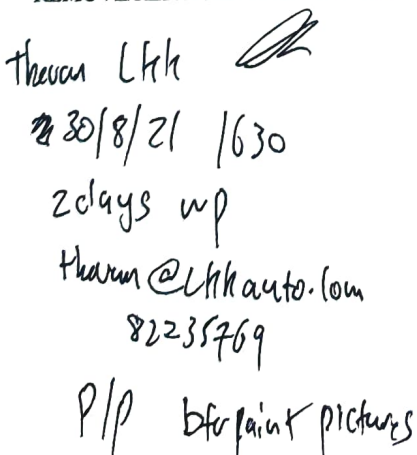 thevan Lkk
30/8/21 1630
2days wp
thevan@lkkauto.com
82235769
P/P bfr paint pictures